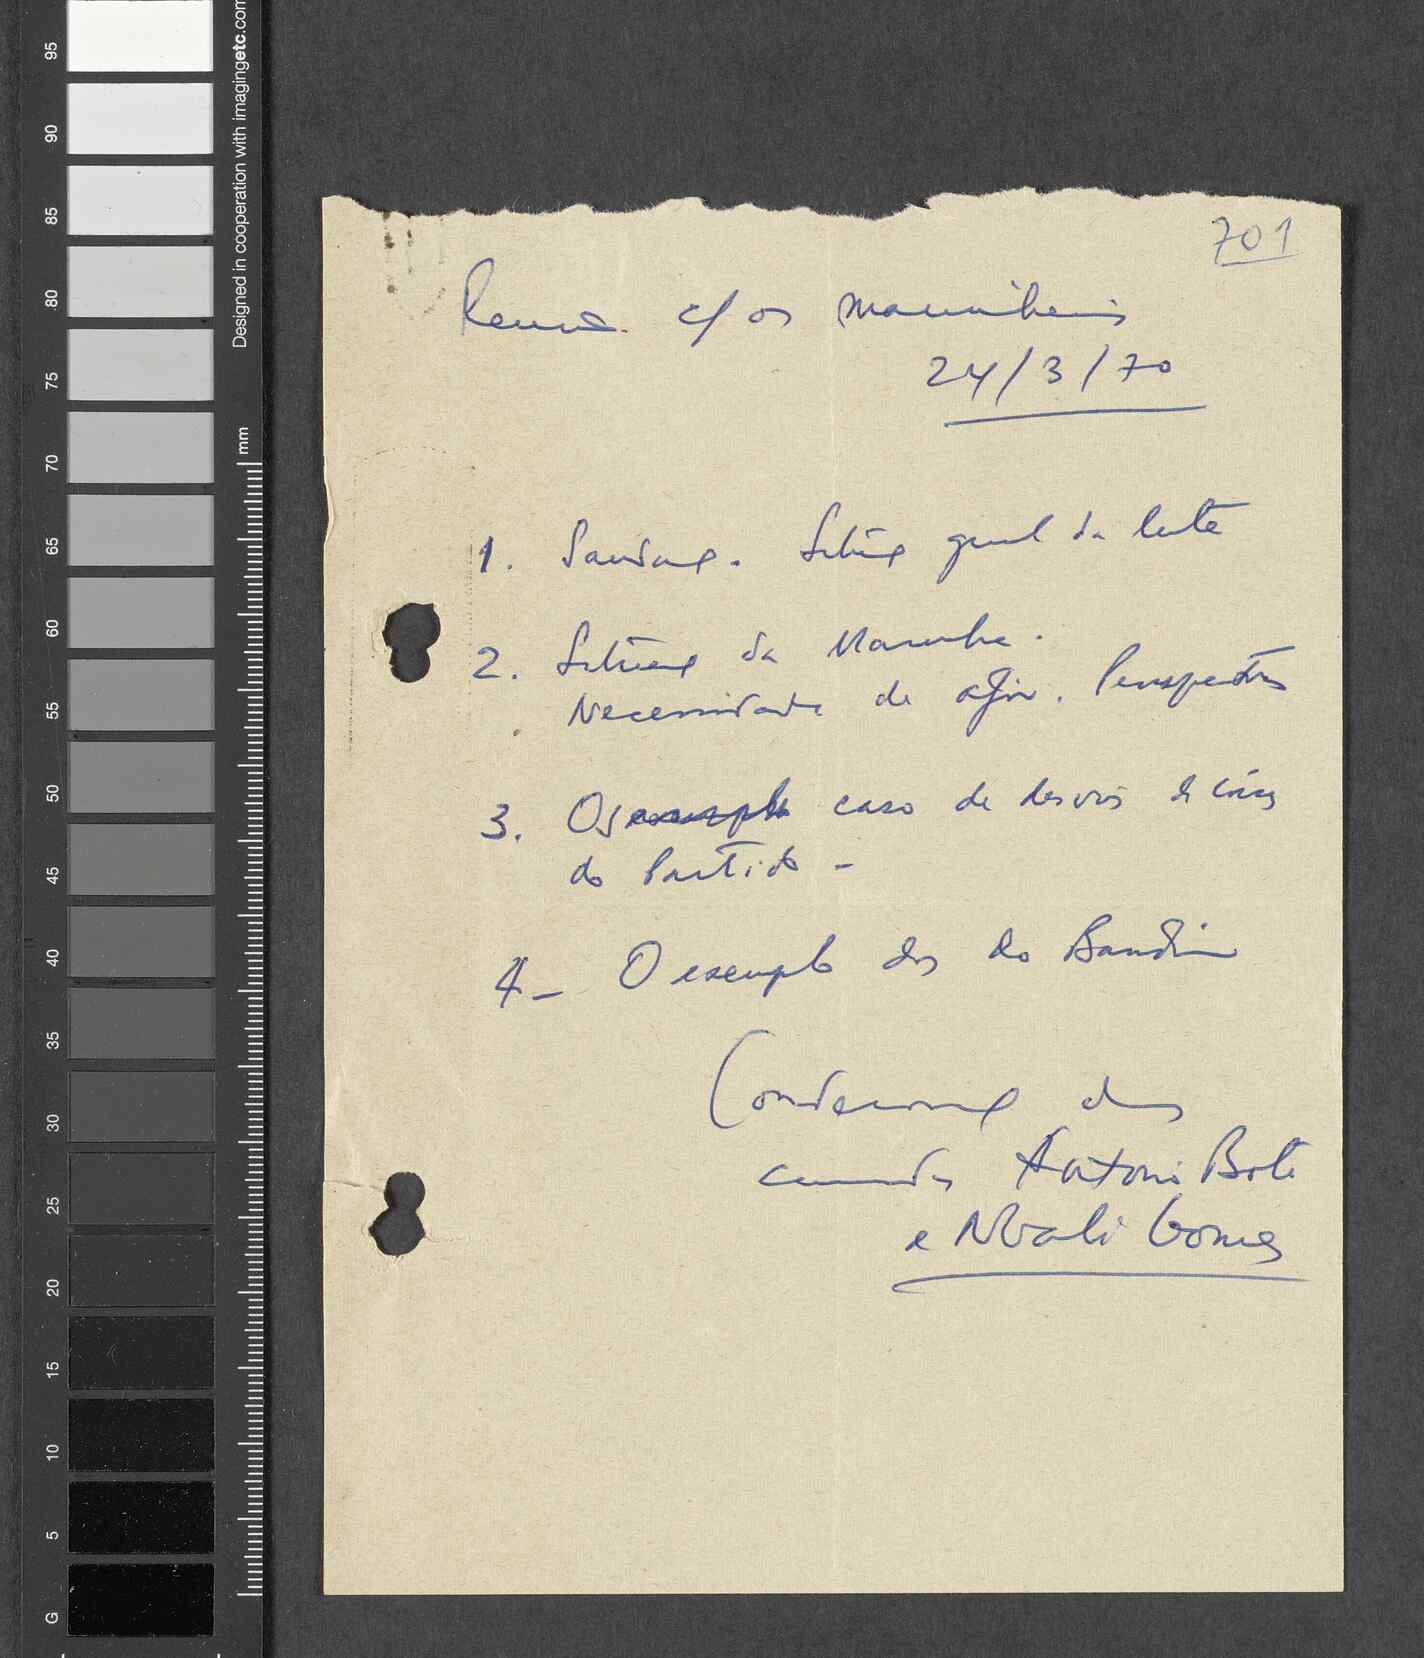 701
Reunião c/ os marinheiros
24/3/70
1. Saudação. Situação geral da luta
2. Situação da Marinha.
Necessidade de agir. Perspectivas
3. Os exemplo caso de desvios de coisas
do Partido -
4 - O exemplo dos do Bandim
Condenação dos
camaradas António Boté
e N'Bali Gomes
Designed in cooperation with imagingetc.com
mm
95
90
85
80
75
70
65
60
55
50
45
40
35
30
25
20
15
10
5
G